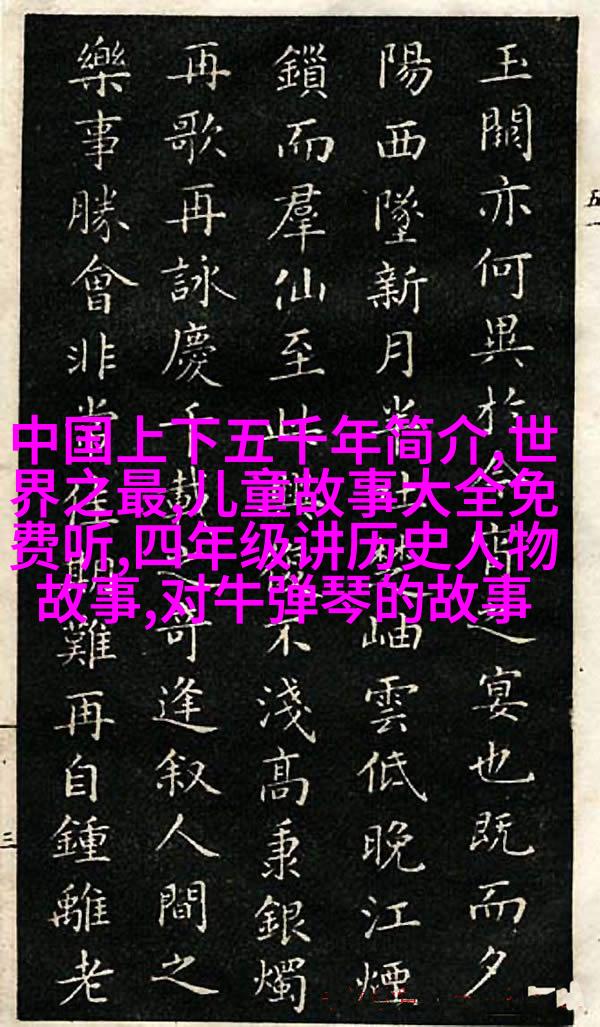 中国上下五千年简介,世
界之最,儿童故事大全免
费听,四年级讲历史人物
故事,对牛弹琴的故事
玉闕亦何異於今宵之宴也既而夕
陽西墜新月上楚岫雲低晚江煙
鎖而羣仙至此興不淺高秉銀燭
再歌再詠慶千載之奇逢叙人間之
樂事勝會非常佳期難再自鍾離老
五一
三